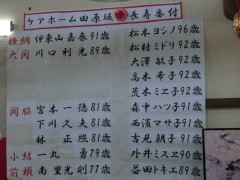 ケアホーム田原坂 長寿番付
横綱 伊東山嘉春91歳 松本ヨシノ96歳
大関 川口利光89歳 松村ミドリ92歳
大澤敏子92歳
高木希子92歳
関脇 宮本一徳82歳 森中ハツ子91歳
下川久夫81歳 西濱マサ子91歳
林正照81歳 吉見朝子91歳
小結 一丸勇79歳 外井ミスヱ90歳
前頭 南里光則77歳 益田トキエ89歳